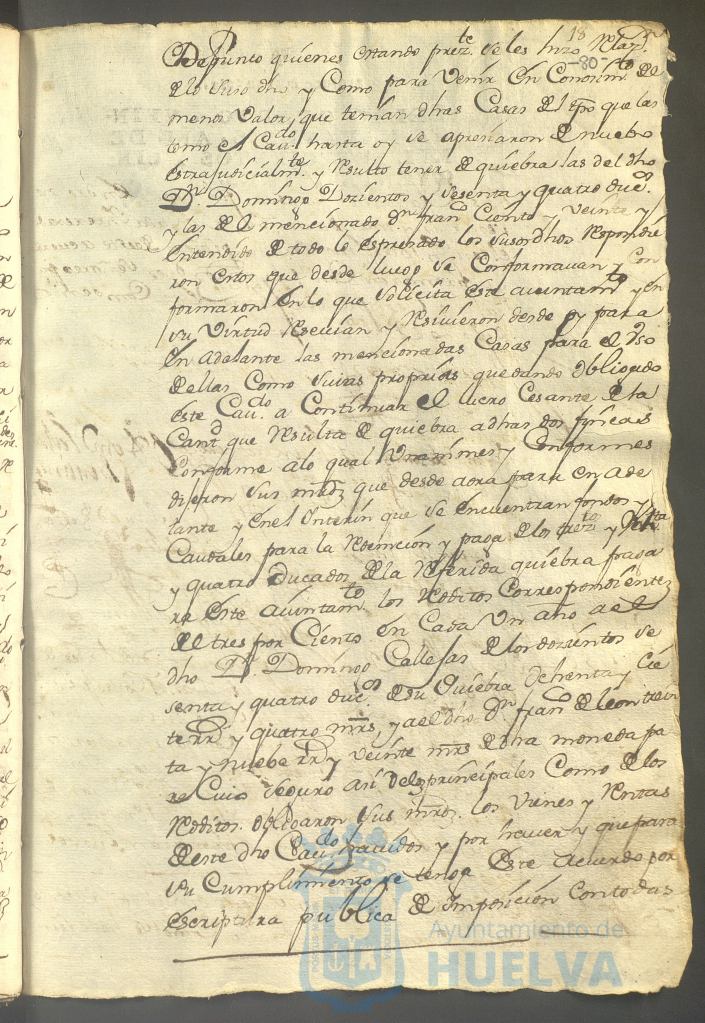 18
-80-
Defunto quienes estando prez.te se les hizo Relaz.n
de lo suso dho y Como para Venir en Conosim.to del
menos Valor, que tenian dhas Casas del tpo que las
tomo el Cav.do hasta oy se apresiaron de nuebo
estrajudicialm.te y Resulto tener de quiebra las del dho
D.n Domingo Dozientos y Sesenta y quatro duc.s
y las del mencionado D.n Fran.co Ciento y Veinte y
entendido de todo lo espresado los susodhos Respondie
ron estos que desde luego se Conformavan y Con
formaron en lo que solicita este aiuntam.to y en
su Virtud Resevian y Resivieron desde oy para
en adelante las mencionadas Casas para el Uso
de ellas Como suias proprias quedando obligado
este Cav.do a Continuar el lucro Cesante de la
Cant.d que Resulta de quiebra a dhas dos fincas
Conforme a lo qual Unanimes y Conformes
dijeron sus mrds que desde aora para en ade
lante y en el Interin que se encuentran fondos y
Caudales para la Redempcion y paga de los trez.tos y
y quatro Ducados de la Referida quiebra paga
ra este aiuntam.to los Reditos Correspondientes
del tres por Ciento en Cada Un año a el
dho D.n Domingo Callejas de los dozientos se
senta y quatro duc.s de su quiebra ochenta y Sie
te rr.s y quatro mrs, y a el dho D.n Fran.co de leon trein
ta y nuebe rr.s y Veinte mrs de dha moneda pa
ra Cuio seguro asi de los principales Como de los
Reditos obligaron sus mrds. los Vienes y Rentas
de este dho Cav.do havidos y por haver y que para
su Cumplimiento se tenga este acuerdo por
escriptura publica de Imposicion Con todas
Ayuntamiento de
HUELVA